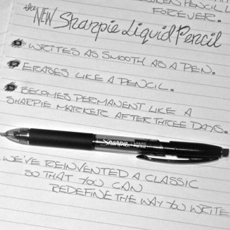 FOREVER.
the NEW Sharpie Liquid Pencil
WRITES AS SMOOTH AS A PEN.
ERASES LIKE A PENCIL.
BECOMES PERMANENT LIKE A
SHARPIE MARKER AFTER THREE DAYS.
Sharpie
WE'VE REINVENTED A CLASSIC
SO THAT YOU CAN
REDEFINE THE WAY YOU WRITE